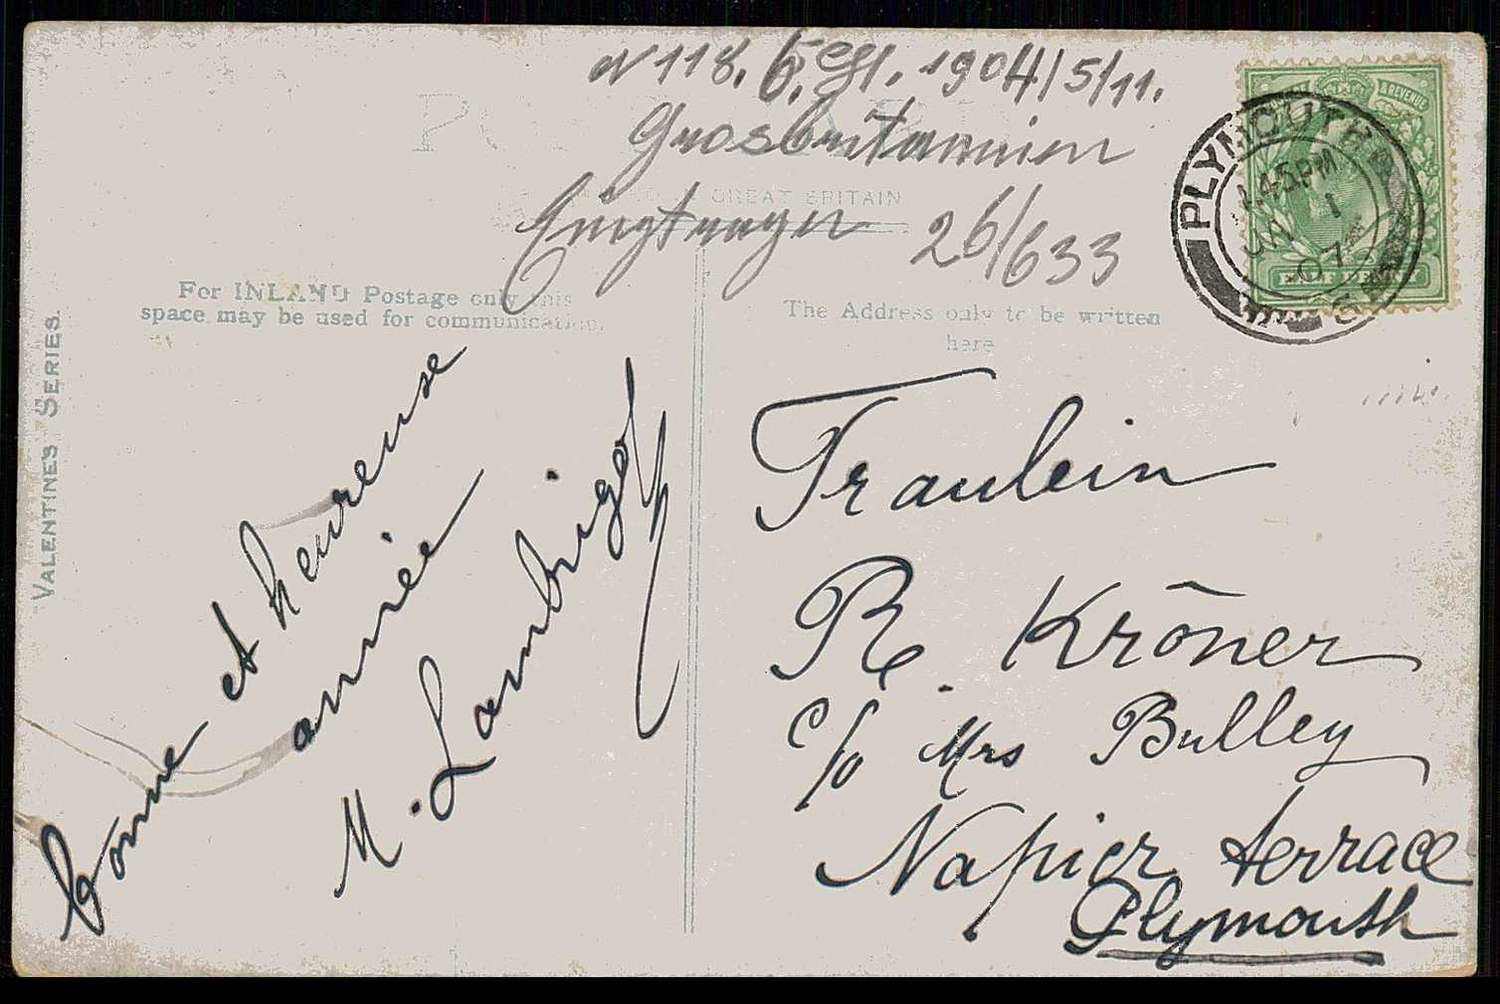 N 118. 6. Bl. 1904/5/11.
Grosbritannien
26/633
POST CARD
GREAT BRITAIN
For INLAND Postage only this
space may be used for communication.
The Address only to be written
here
VALENTINE'S SERIES.
& REVENUE
HALFPENNY
PLYMOUTH
1.45PM
JA 1
07
Bonne et heureuse
année
Fraulein
R. Kröner
c/o Mrs Bulley
Napier terrace
Plymouth